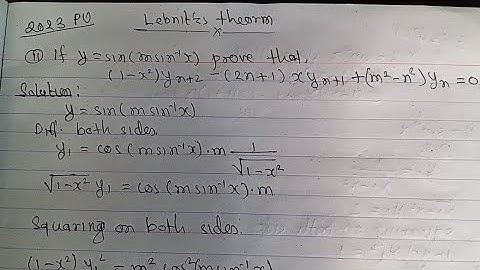 2023 PU
Lebnitz's theorm
x
(11) If y=sin(m sin⁻¹x) prove that,
(1-x²)yₙ₊₂ -(2n+1) x yₙ₊₁ +(m²-n²)yₙ =0
Solution:
y = sin(m sin⁻¹x)
Diff. both sides.
y₁ = cos(m sin⁻¹x)·m 1/√1-x²
√1-x² y₁ = cos(m sin⁻¹x)·m
Squaring on both sides.
(1-x²) y₁² = m² cos²(m sin⁻¹x)